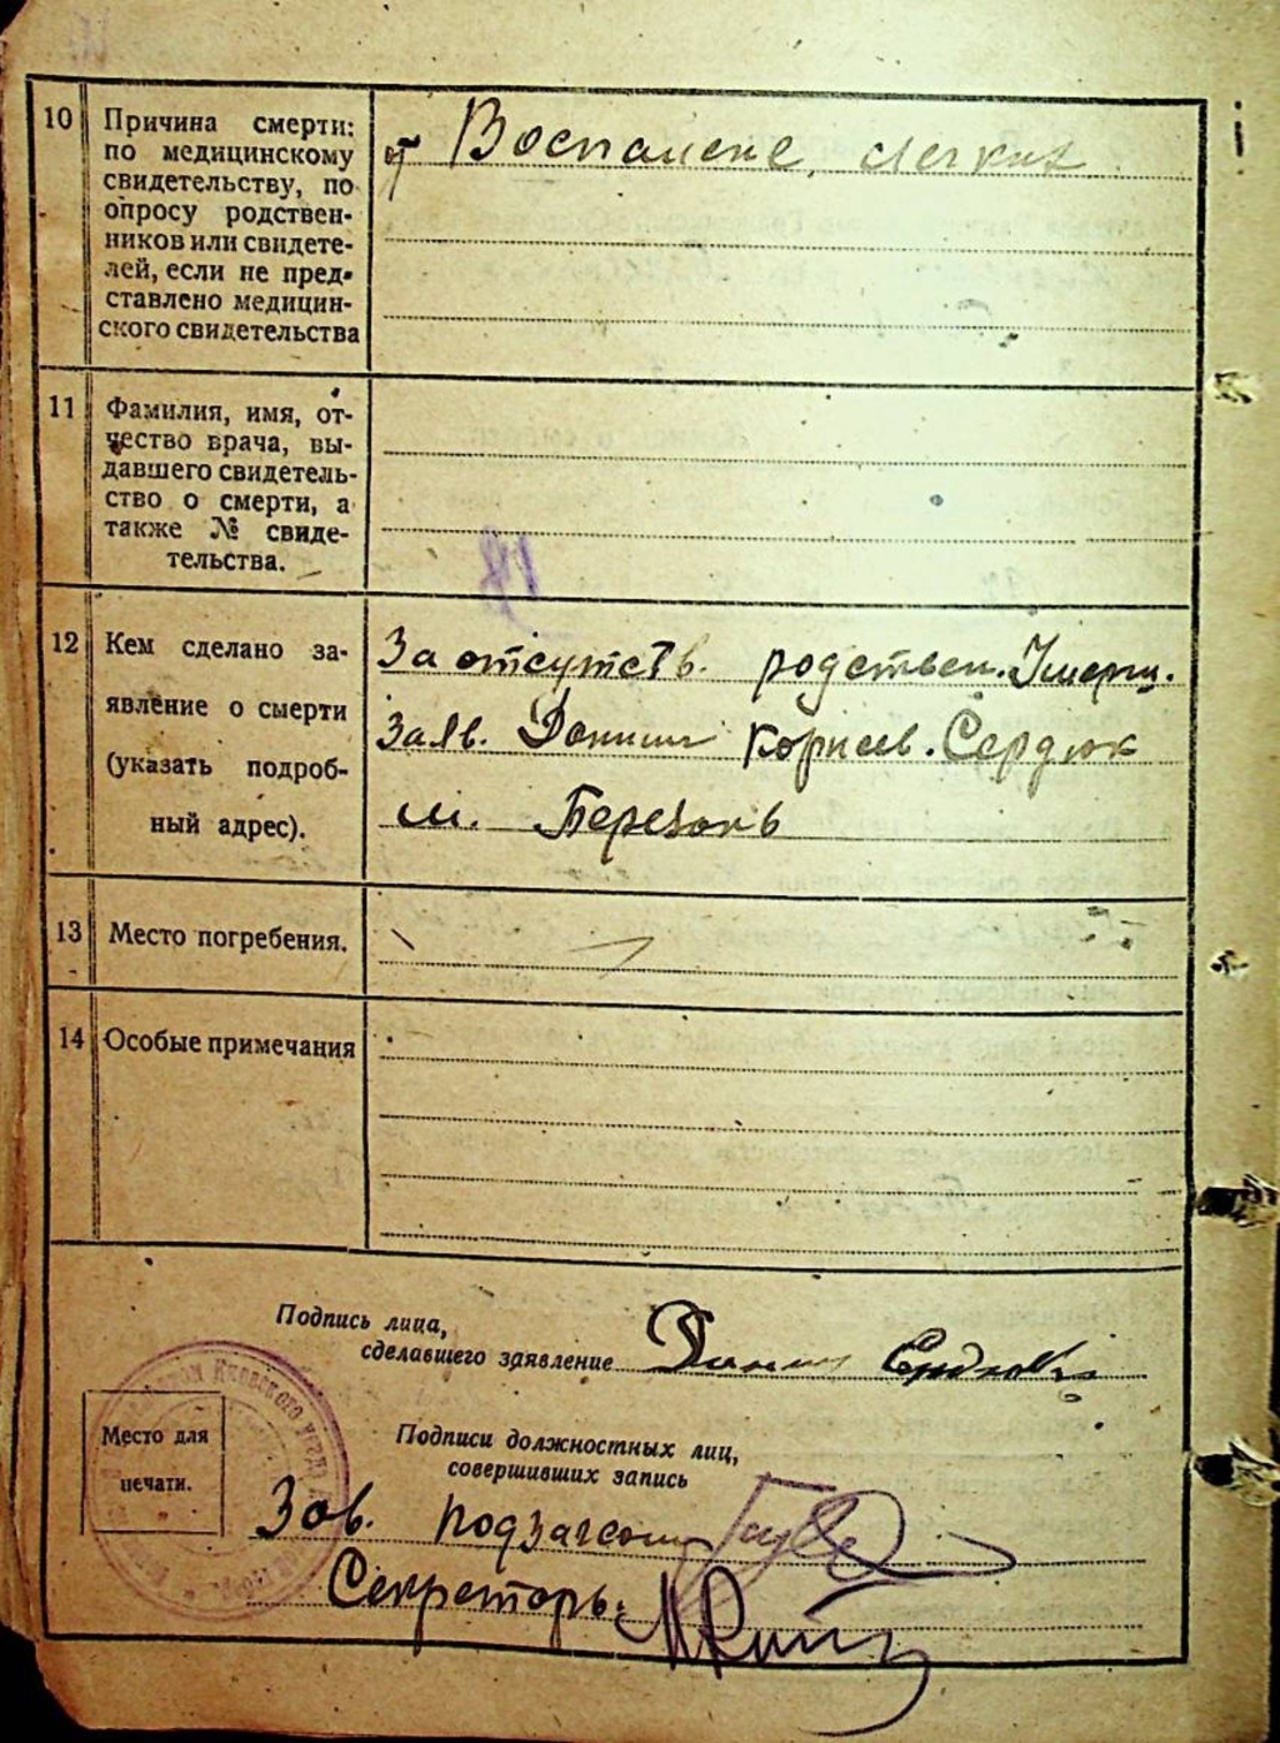 10 Причина смерти:
по медицинскому
свидетельству, по
опросу родствен-
ников или свидете-
лей, если не пред-
ставлено медицин-
ского свидетельства
от Воспаление легких
11 Фамилия, имя, от-
чество врача, вы-
давшего свидетель-
ство о смерти, а
также № свиде-
тельства.
12 Кем сделано за-
явление о смерти
(указать подроб-
ный адрес).
За отсутств. родствен. Умерш.
заяв. Корнеев. Сердюк
м.
13 Место погребения.
14 Особые примечания
Подпись лица,
сделавшего заявление
Место для
печати.
Подписи должностных лиц,
совершивших запись
Зав. подзагсом
Секреторь: